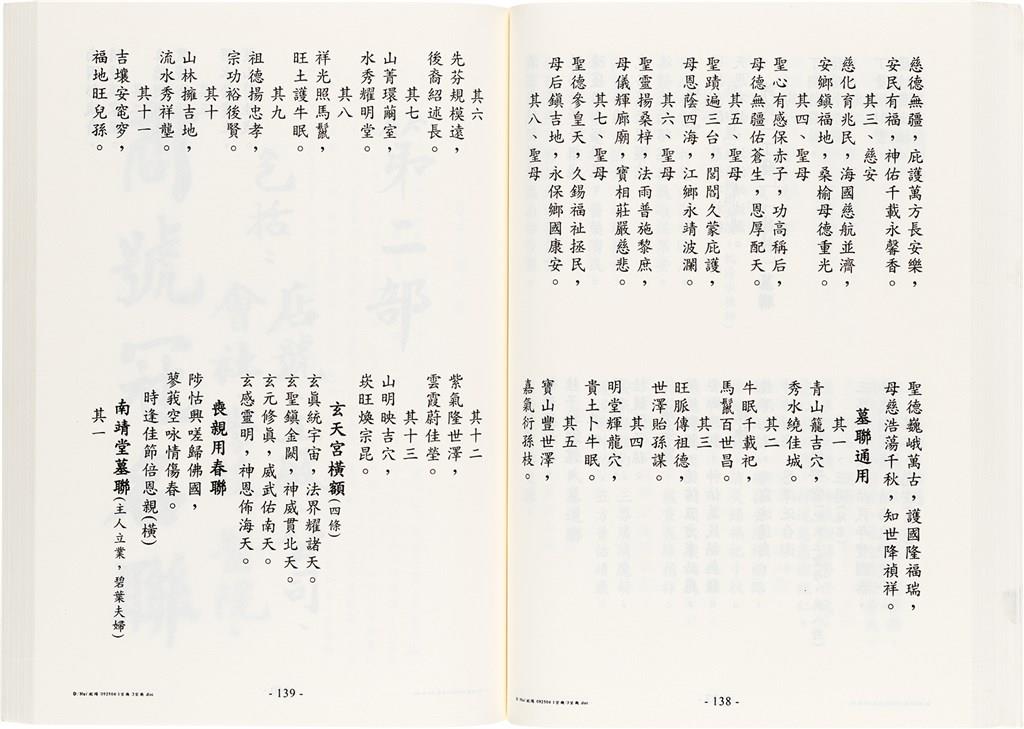 慈德無疆，庇護萬方長安樂，
安民有福，神佑千載永馨香。
其三、慈安
慈化育兆民，海國慈航並濟，
安鄉鎮福地，桑榆母德重光。
其四、聖母
聖心有感保赤子，功高稱后，
母德無疆佑蒼生，恩厚配天。
其五、聖母
聖蹟遍三台，閭閻久蒙庇護，
母恩蔭四海，江鄉永靖波瀾。
其六、聖母
聖靈揚桑梓，法雨普施黎庶，
母儀輝廊廟，寶相莊嚴慈悲。
其七、聖母
聖德參皇天，久錫福祉拯民，
母后鎮吉地，永保鄉國康安。
其八、聖母
聖德巍峨萬古，護國隆福瑞，
母慈浩蕩千秋，知世降禎祥。
墓聯通用
其一
青山籠吉穴，
秀水繞佳城。
其二
牛眠千載祀，
馬鬣百世昌。
其三
旺脈傳祖德，
世澤貽孫謀。
其四
明堂輝龍穴，
貴土卜牛眠。
其五
寶山豐世澤，
嘉氣衍孫枝。
- 138 -
其六
先芬規模遠，
後裔紹述長。
其七
山菁環薾室，
水秀耀明堂。
其八
祥光照馬鬣，
旺土護牛眠。
其九
祖德揚忠孝，
宗功裕後賢。
其十
山林擁吉地，
流水秀祥壟。
其十一
吉壤安窀穸，
福地旺兒孫。
其十二
紫氣隆世澤，
雲霞蔚佳塋。
其十三
山明映吉穴，
崁旺煥宗昆。
玄天宮橫額(四條)
玄真統宇宙，法界耀諸天。
玄聖鎮金闕，神威貫北天。
玄元修真，威武佑南天。
玄感靈明，神恩佈海天。
喪親用春聯
陟怙興嗟歸佛國，
蓼莪空咏情傷春。
時逢佳節倍恩親(橫)
南靖堂墓聯(主人立業，碧葉夫婦)
其一
- 139 -